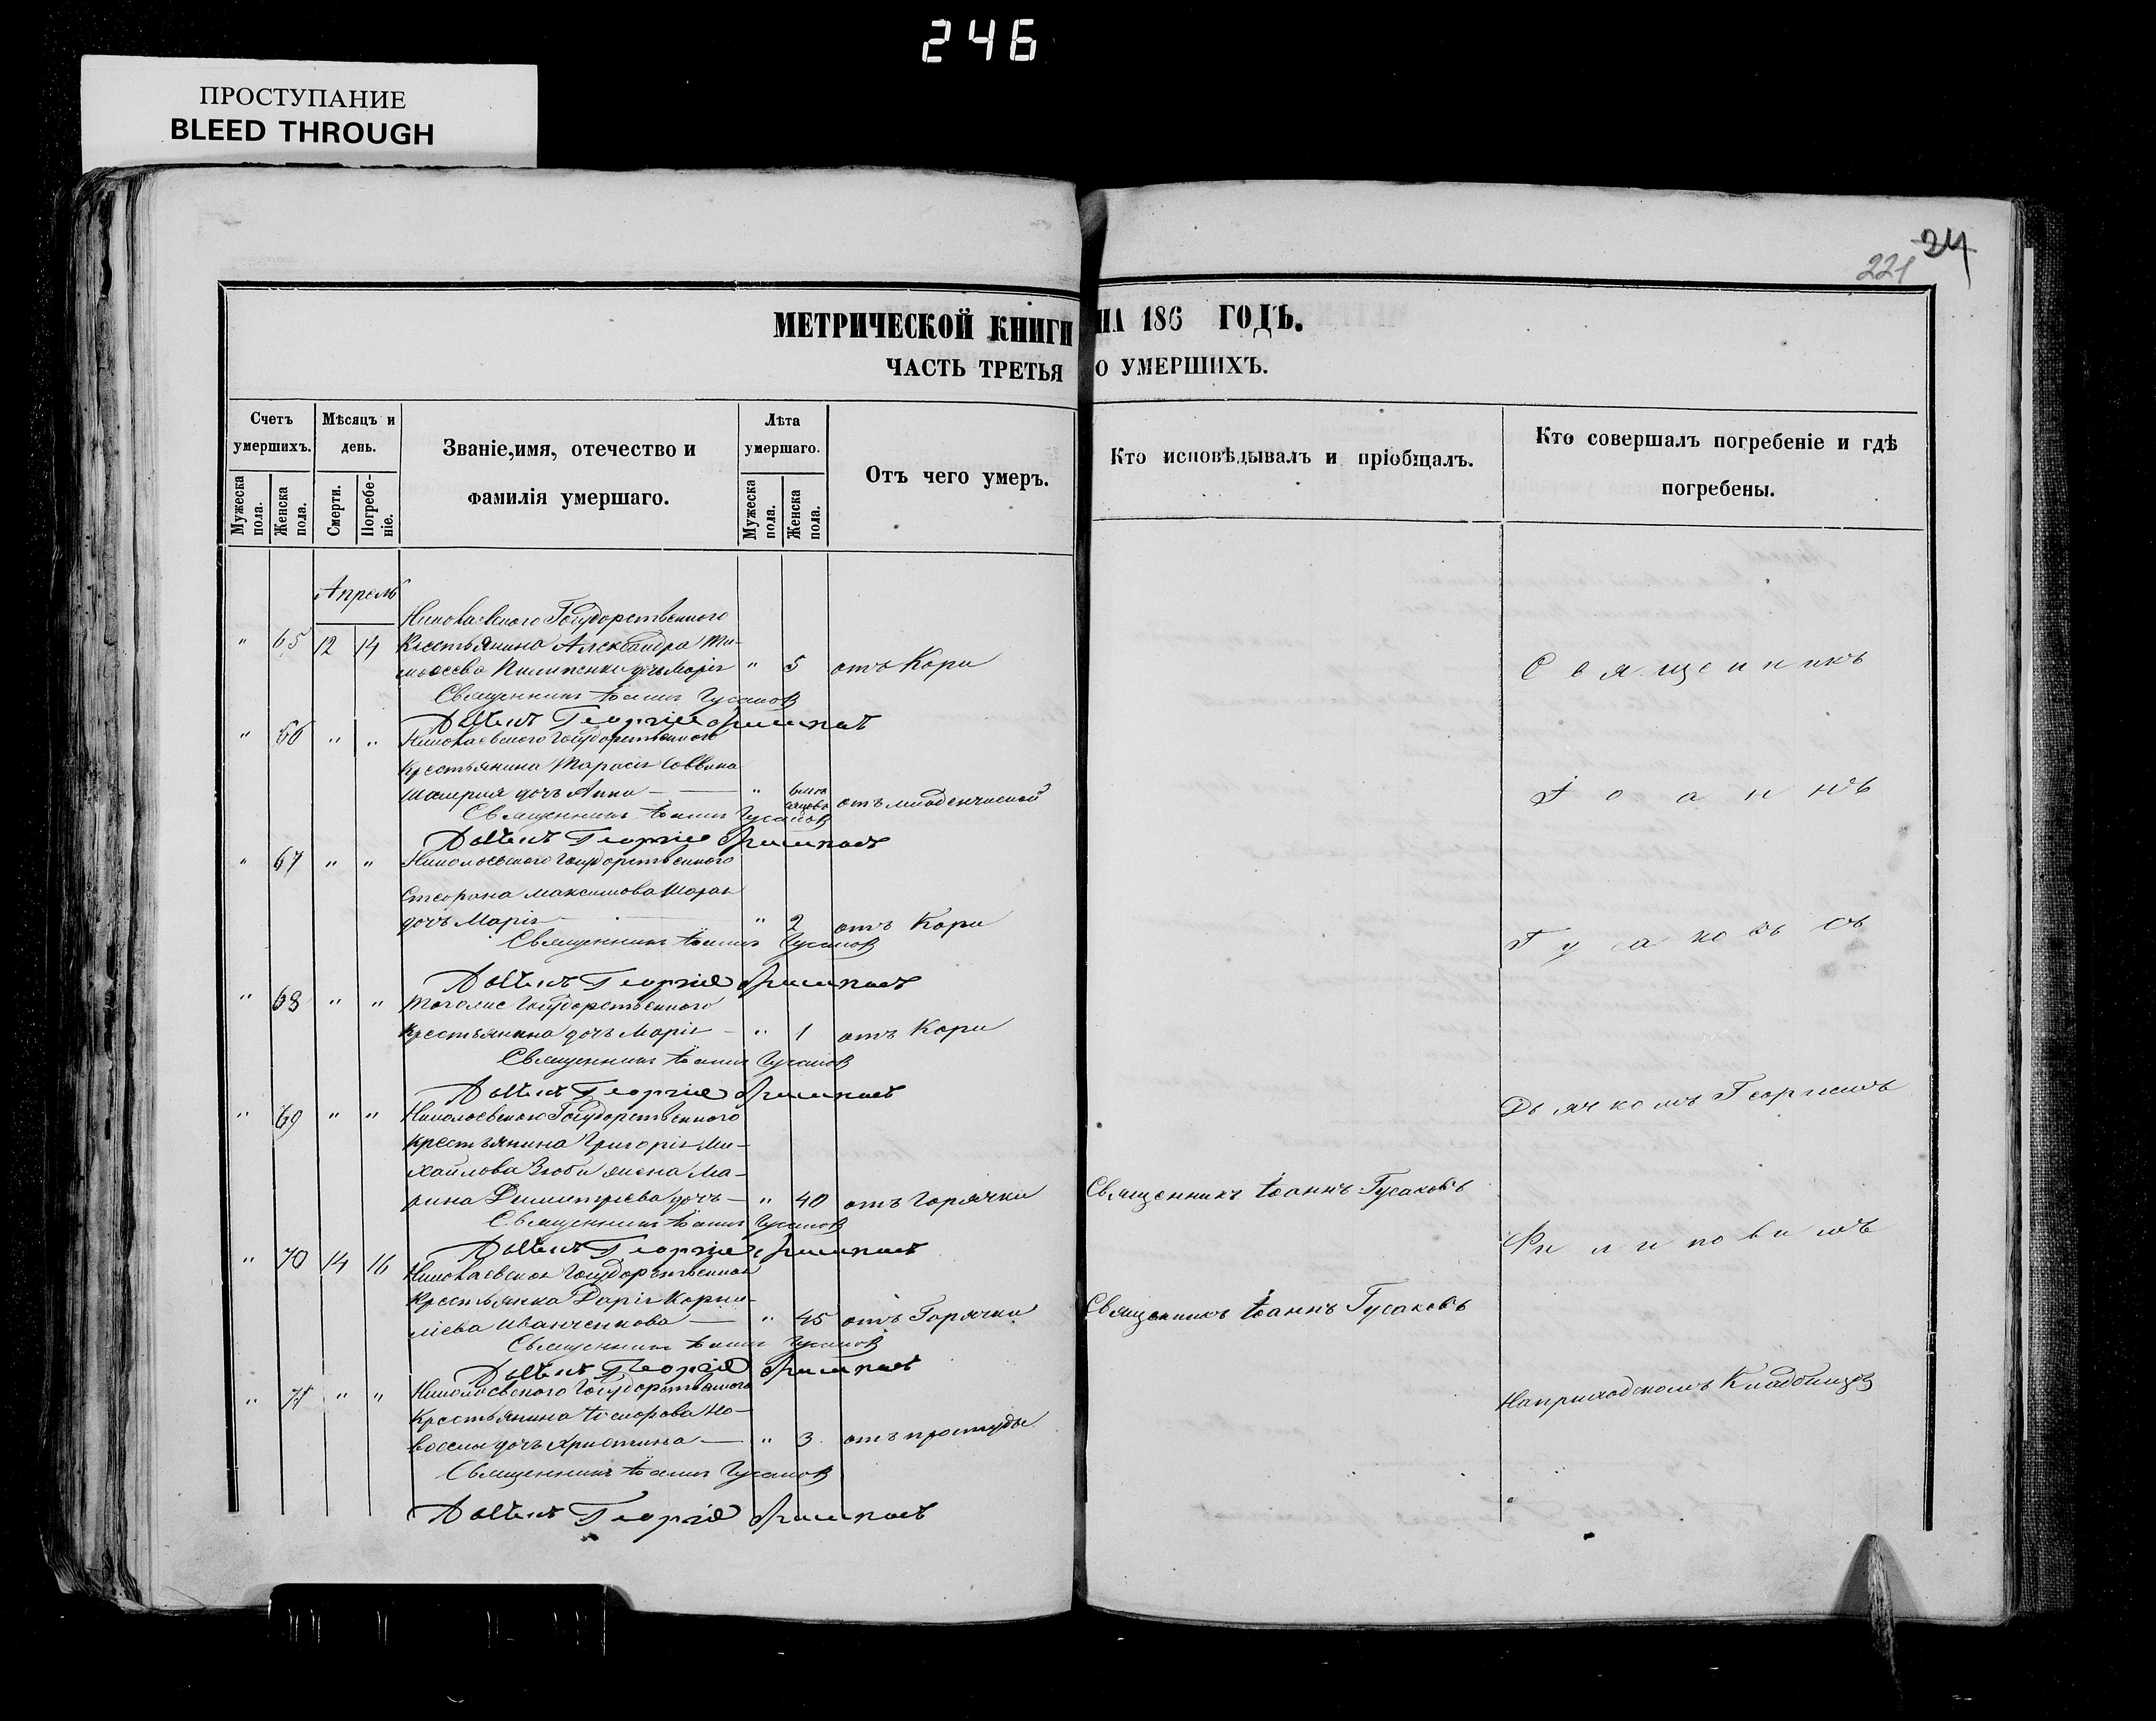 246
ПРОСТУПАНИЕ
BLEED THROUGH
24
221
МЕТРИЧЕСКОЙ КНИГИ НА 186 ГОДЪ.
ЧАСТЬ ТРЕТЬЯ О УМЕРШИХЪ.
Счетъ умершихъ.
Мужеска пола.
Женска пола.
Мѣсяцъ и день.
Смерти.
Погребеніе.
Званіе, имя, отечество и фамилія умершаго.
Лѣта умершаго.
Мужеска пола.
Женска пола.
Отъ чего умеръ.
Кто исповѣдывалъ и пріобщалъ.
Кто совершалъ погребеніе и гдѣ погребены.
Апрель
Николаевского Государственного
" 65 12 14 Крестьянина Александра Ти-
мофеева Пилипенки дочь Марія " 5 отъ Кори
Священникъ Іоаннъ Гусаковъ
Георгій
" 66 " " Николаевского Государственного
Крестьянина Тарасія Саввина
дочь Анна — " отъ младенческой
Священникъ Іоаннъ Гусаковъ
Георгій
" 67 " " Николаевского Государственного
Стефана Максимова
дочь Марія " 2 отъ Кори
Священникъ Іоаннъ Гусаковъ
Георгій
" 68 " " Тогоже Государственного
Крестьянина дочь Марія — " 1 отъ Кори
Священникъ Іоаннъ Гусаковъ
Георгій
" 69 " " Николаевского Государственного
крестьянина Григорія Ми-
хайлова жена Ма-
рина Димитріева дочь — " 40 отъ Горячки Священникъ Іоаннъ Гусаковъ
Священникъ Іоаннъ Гусаковъ
Георгій
" 70 14 16 Николаевская Государственная
Крестьянка Дарія Корни-
ліева Иванченкова — " 45 отъ Горячки Священникъ Іоаннъ Гусаковъ
Священникъ Іоаннъ Гусаковъ
Георгій
" 71 " " Николаевского Государственного
Крестьянина
дочь Христина — " 3 отъ простуды
Священникъ Іоаннъ Гусаковъ
Георгій
Священникъ
Іоаннъ
Гусаковъ съ
Дьячкомъ Георгіемъ
На приходскомъ Кладбищѣ